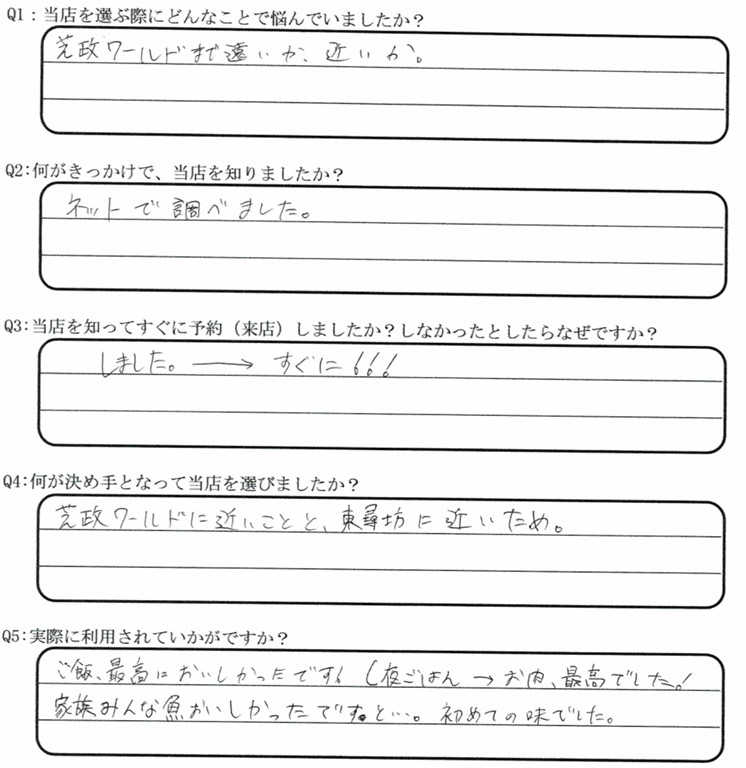 Q1：当店を選ぶ際にどんなことで悩んでいましたか？
芝政ワールドまで遠いか、近いか。
Q2：何がきっかけで、当店を知りましたか？
ネットで調べました。
Q3：当店を知ってすぐに予約（来店）しましたか？しなかったとしたらなぜですか？
しました。→すぐに!!!
Q4：何が決め手となって当店を選びましたか？
芝政ワールドに近いことと、東尋坊に近いため。
Q5：実際に利用されていかがですか？
ご飯、最高においしかったです! (夜ごはん→お肉、最高でした!
家族みんな魚おいしかったです。と…。初めての味でした。